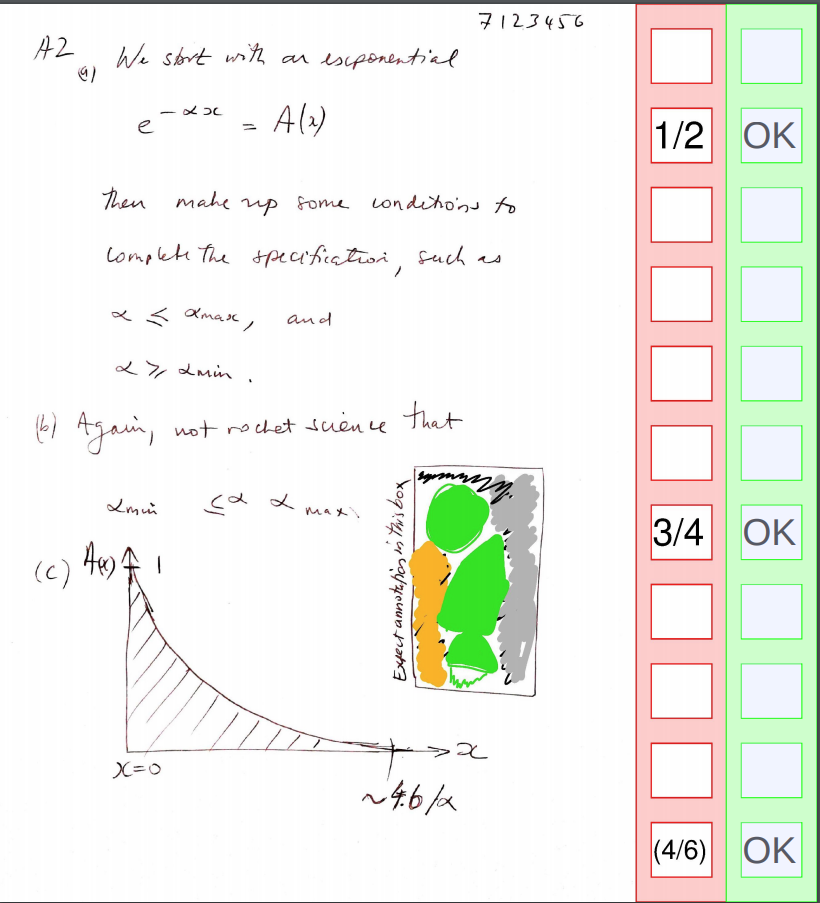 7123456
A2
(a) We start with an exponential
e^{-αx} = A(x)
1/2 OK
then make up some conditions to
complete the specification, such as
α ≤ αmax, and
α ≥ αmin.
(b) Again, not rocket science that
αmin ≤ α αmax.
3/4 OK
Expect annotation in this box
(c) A(x) 1
x
x=0
~4.6/α
(4/6) OK